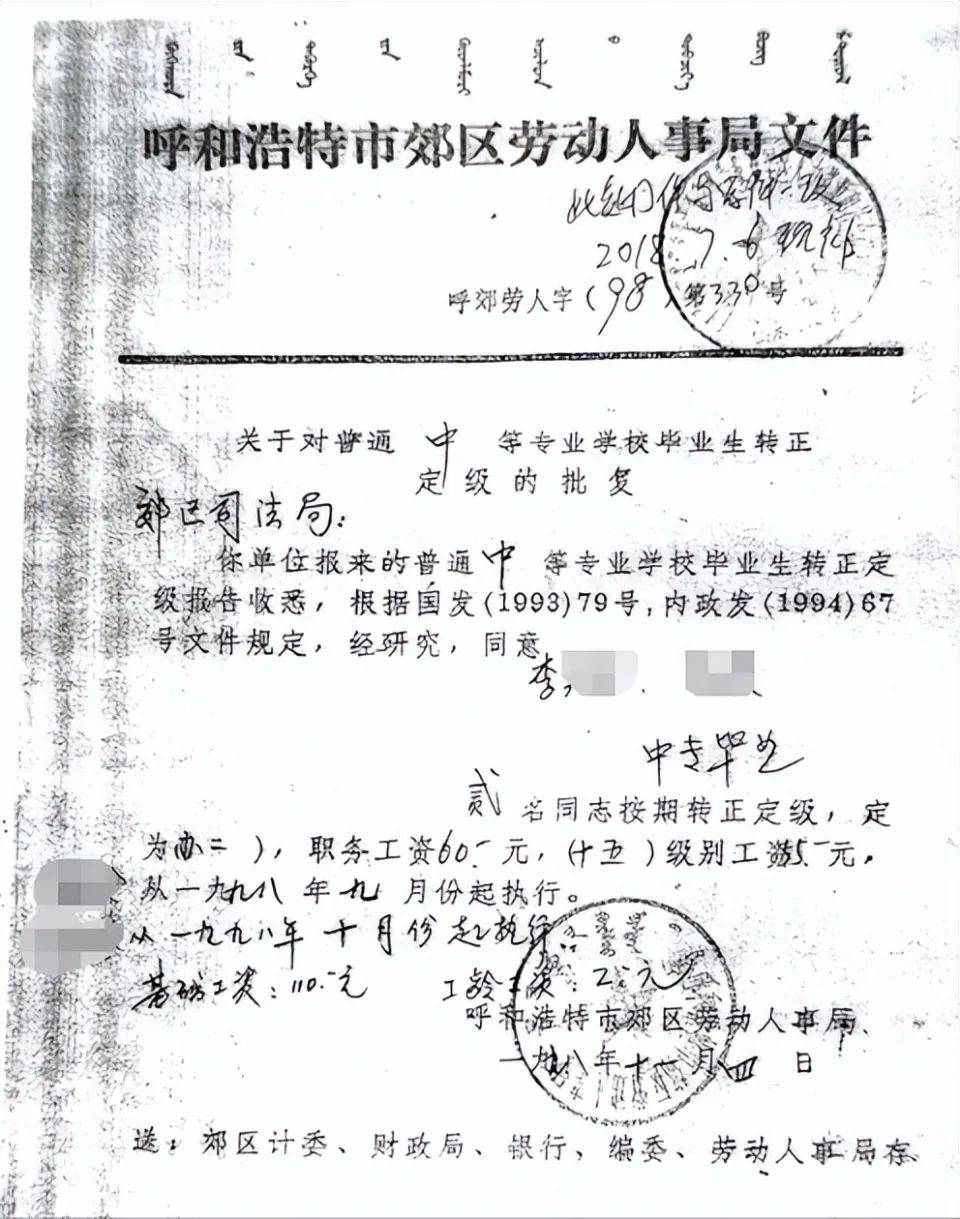 呼和浩特市郊区劳动人事局文件
此复印件与原件一致
2018.7.6
呼郊劳人字(98)第330号
关于对普通中等专业学校毕业生转正
定级的批复
郊区司法局:
你单位报来的普通中等专业学校毕业生转正定
级报告收悉,根据国发(1993)79号,内政发(1994)67
号文件规定,经研究,同意
李
中专毕业
贰名同志按期转正定级,定
为办二),职务工资60元,(十五)级别工资55元。
从一九九八年九月份起执行。
从一九九八年十月份起执行
基础工资:110元 工龄工资:2元
呼和浩特市郊区劳动人事局
一九九八年十一月四日
送:郊区计委、财政局、银行、编委、劳动人事局存